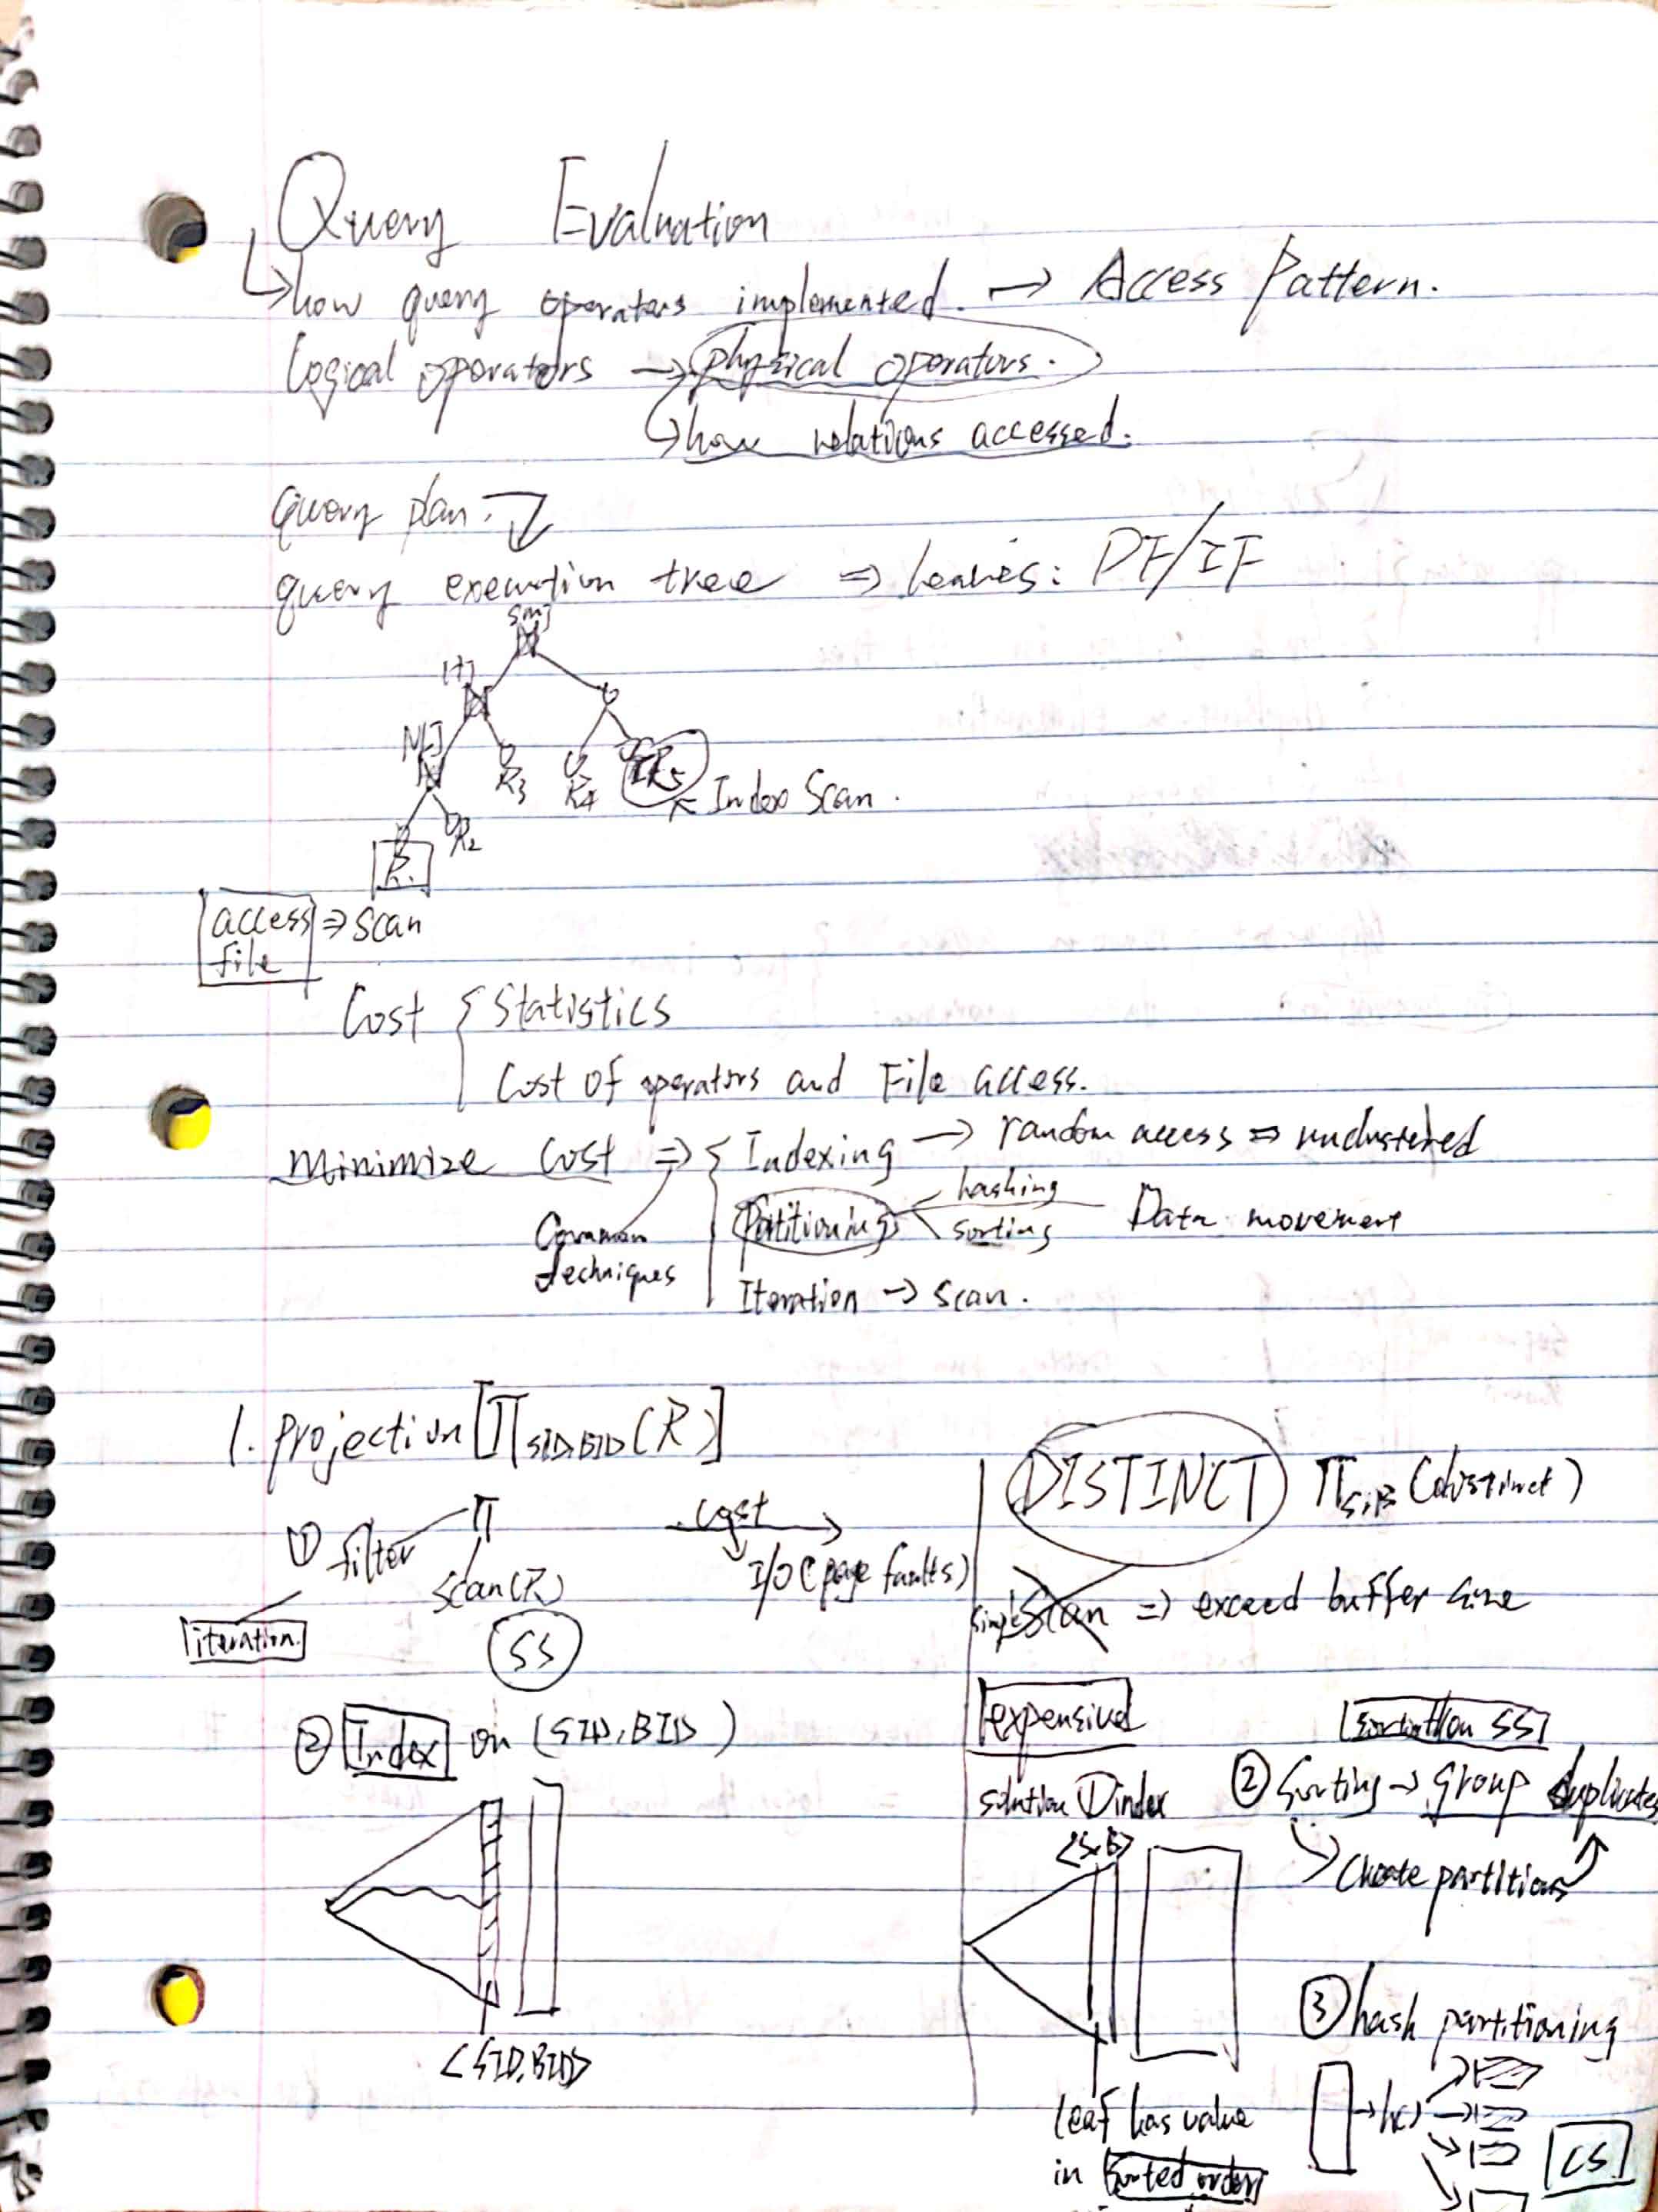 Query Evaluation
↳ how query operators implemented. → Access Pattern.
Logical operators → physical operators.
↳ how relations accessed.
Query plan.
query execution tree ⇒ leaves: DF/IF
SMJ
HJ
NLJ
R3 R4 IR5
← Index Scan.
R2
R1
access file ⇒ scan
Cost { Statistics
Cost of operators and File access.
minimize cost ⇒ { Indexing → random access ⇒ unclustered
Partitioning
hashing
sorting
Data movement
Common techniques
Iteration → scan.
1. Projection [π SID,BID (R)]
① filter π
scan(R)
iteration.
SS
cost
I/O (page faults)
② Index on (SID, BID)
<SID, BID>
DISTINCT π S,B (distinct)
simple scan ⇒ exceed buffer size
expensive
solution ① index
<S,B>
leaf has value
in sorted order
② Sorting → group duplicates
Create partitions
③ hash partitioning
→ h() →
CS